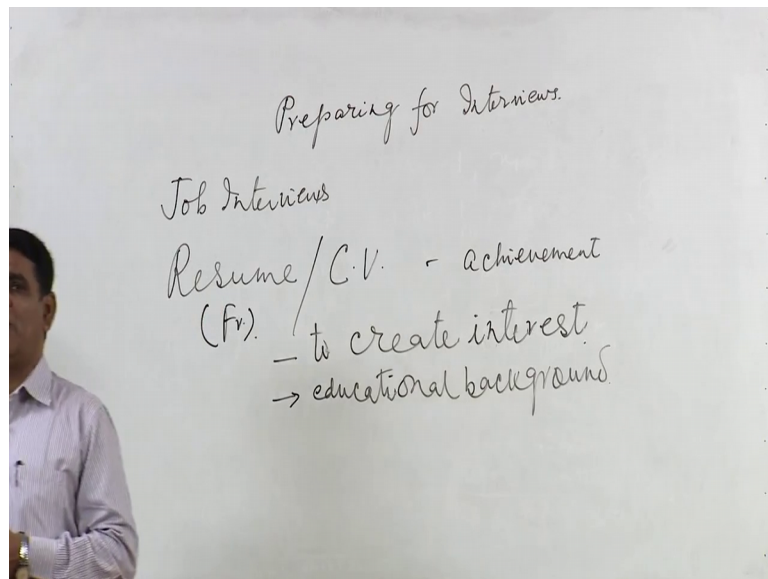 Preparing for Interviews.
Job Interviews
Resume / C.V. - achievement
(Fr).
- to create interest.
→ educational background.